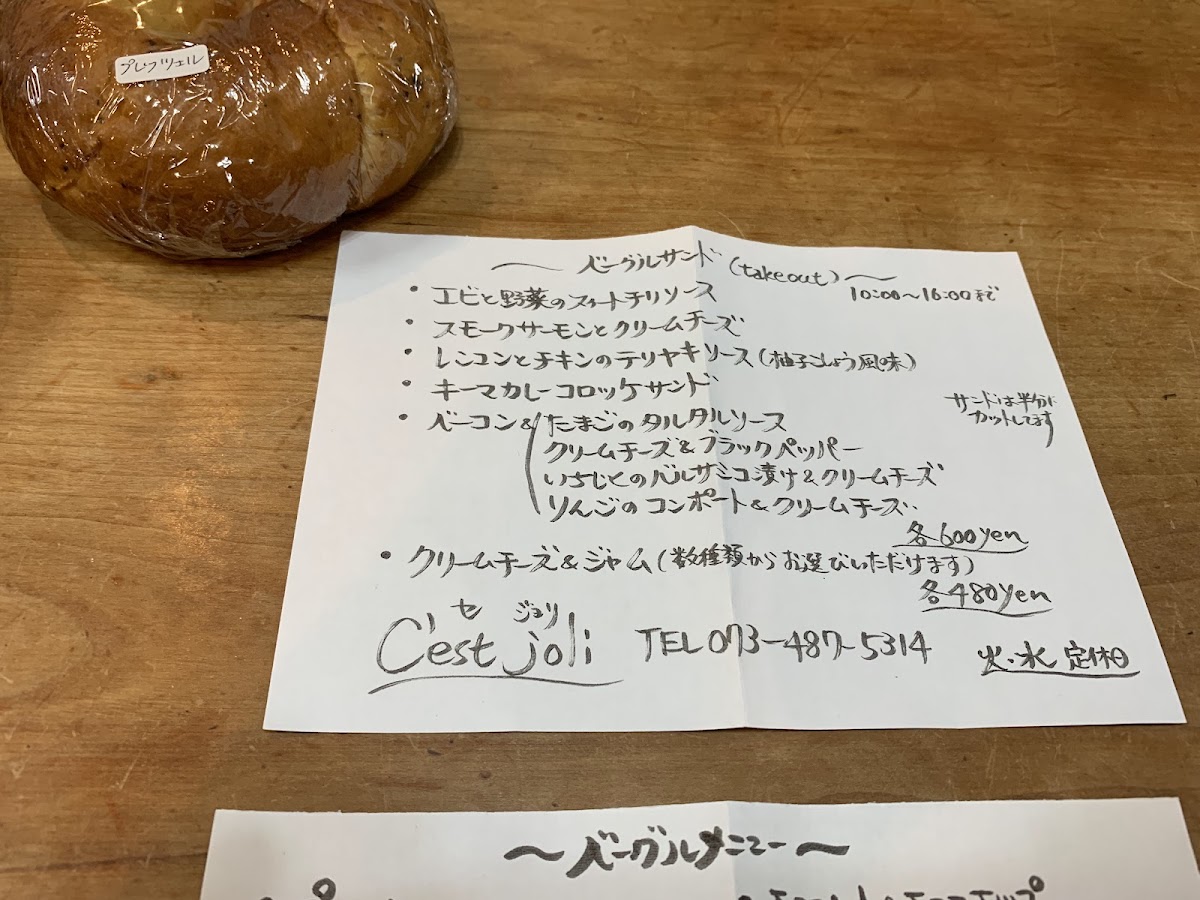 プレッツェル
〜 ベーグルサンド (takeout) 〜
10:00〜16:00まで
・エビと野菜のスイートチリソース
・スモークサーモンとクリームチーズ
・レンコンとチキンのテリヤキソース(柚子こしょう風味)
・キーマカレーコロッケサンド
サンドは半分に
カットしてます
・ベーコン&たまごのタルタルソース
クリームチーズ&ブラックペッパー
いちじくのバルサミコ漬け&クリームチーズ
りんごのコンポート&クリームチーズ
各600yen
・クリームチーズ&ジャム(数種類からお選びいただけます)
各480yen
セ ジョリ
C'est joli TEL 073-487-5314 火・水 定休日
〜ベーグルメニュー〜